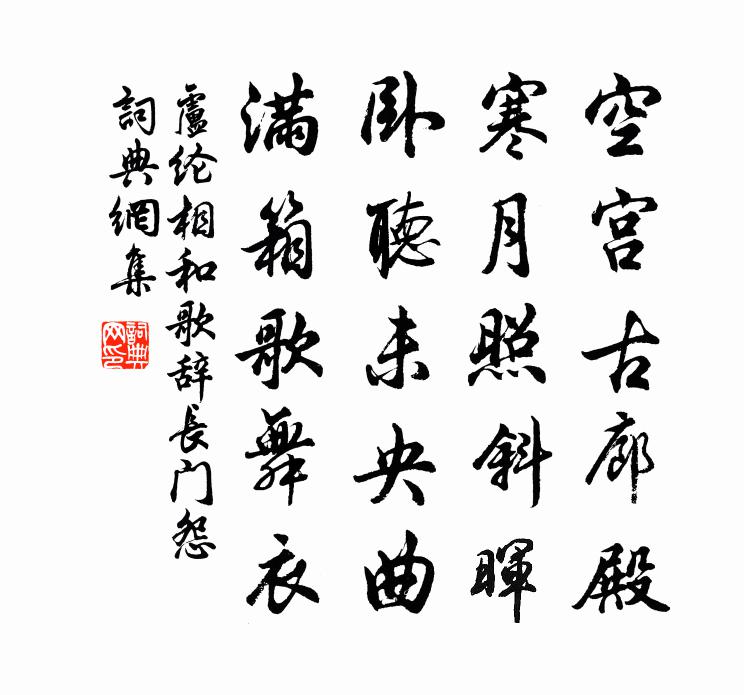 空宫古廊殿
寒月照斜暉
卧聽未央曲
滿箱歌舞衣
盧纶相和歌辞長门怨
詞典網集
詞典网印